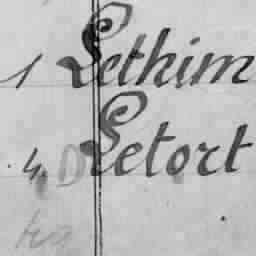 1 Lethim
4. D Letort